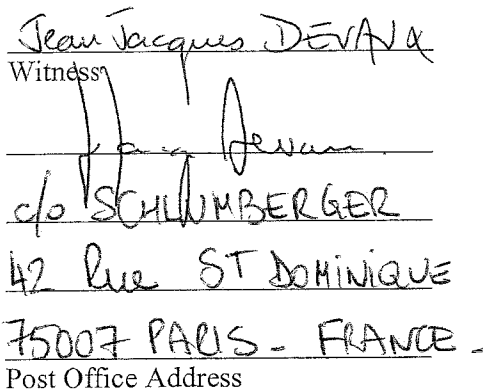 Jean Jacques DEVAUX
Witness
c/o SCHLUMBERGER
42 Rue ST DOMINIQUE
75007 PARIS - FRANCE -
Post Office Address